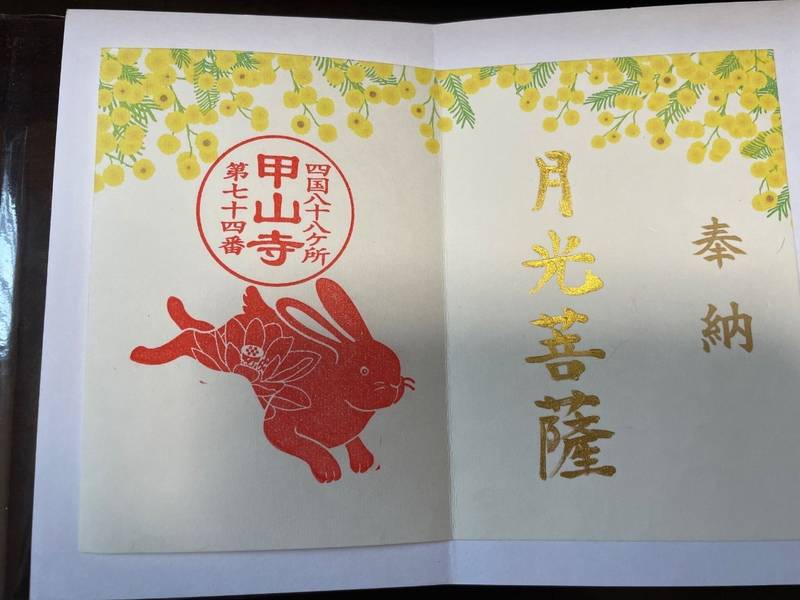 奉納
月光菩薩
四国八十八ケ所
甲山寺
第七十四番